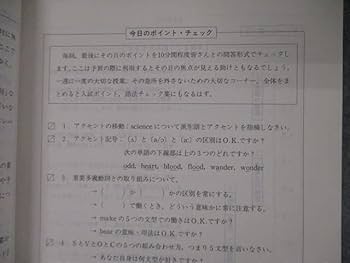 今日のポイント・チェック
毎回、最後にその日のポイントを10分間程度皆さんとの問答形式でチェックし
ます。ここは予習の際に利用するとその日の焦点が見える助けともなるでしょう。
一週に一度の大切な授業。その急所を外さないための大切なコーナー。全体をま
とめると入試ポイント、語法チェック集にもなるはず。
1 アクセントの移動:scienceについて派生語とアクセントを指摘しなさい。
2 アクセント記号:(ʌ)と(a/ɔ)と(əː)の区別はO.K.ですか?
次の単語の下線部は上の3つのどれですか?
odd, heart, blood, flood, wander, wonder
3 重要多義動詞との取り組みについて。
→( )か( )かの区別を常にする。
→( )で働くとき、どういう意味かに常に注意する。
→ makeの5文型での働きはO.K.ですか?
→ bearの意味・用法はO.K.ですか?
4 SとVとOとCの5つの組み合わせ方、つまり5文型を言いなさい。
→ あなた自身は何文型が好きですか?